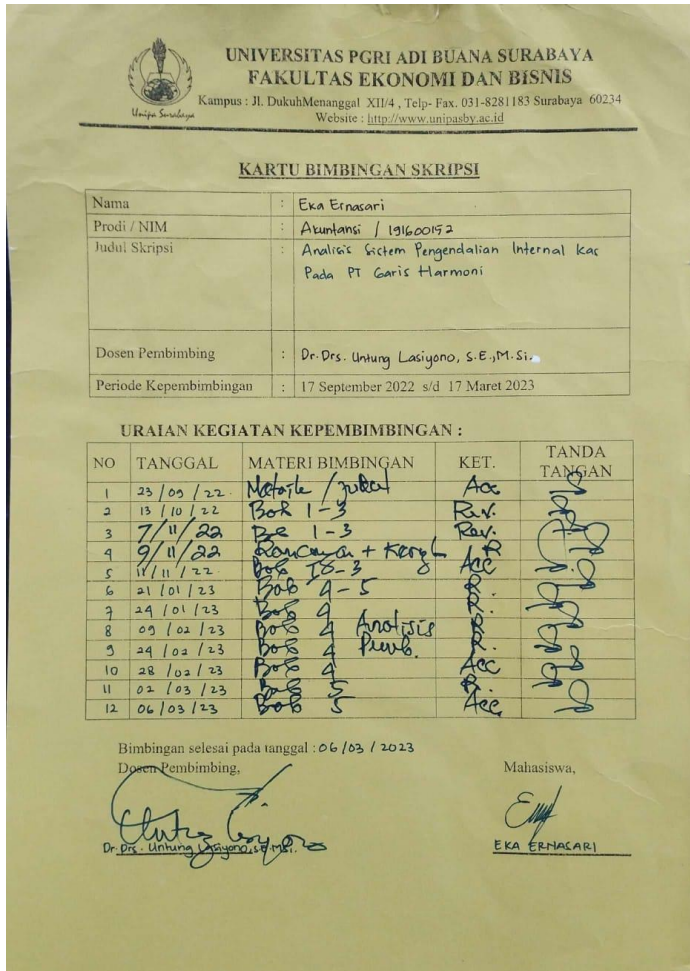 UNIVERSITAS PGRI ADI BUANA SURABAYA
FAKULTAS EKONOMI DAN BISNIS
Kampus : Jl. DukuhMenanggal XII/4 , Telp- Fax. 031-8281183 Surabaya 60234
Website : http://www.unipasby.ac.id
Unipa Surabaya
KARTU BIMBINGAN SKRIPSI
Nama : Eka Ernasari
Prodi / NIM : Akuntansi / 191600152
Judul Skripsi : Analisis Sistem Pengendalian Internal Kas
Pada PT Garis Harmoni
Dosen Pembimbing : Dr. Drs. Untung Lasiyono, S.E., M.Si.
Periode Kepembimbingan : 17 September 2022 s/d 17 Maret 2023
URAIAN KEGIATAN KEPEMBIMBINGAN :
NO TANGGAL MATERI BIMBINGAN KET. TANDA TANGAN
1 23 / 09 / 22 / Judul Acc
2 13 / 10 / 22 Bab 1 - 3 Rev.
3 7/11/22 1 - 3 Rev.
4 9/11/22 + R
5 11/11/22 Bab - 3 Acc
6 21 / 01 / 23 Bab 4 - 5 R.
7 24 / 01 / 23 Bab 4 R.
8 09 / 02 / 23 Bab 4 Analisis R.
9 24 / 02 / 23 Bab 4 R.
10 28 / 02 / 23 Bab 4 Acc
11 02 / 03 / 23 Bab 5 R.
12 06 / 03 / 23 Bab 5 Acc
Bimbingan selesai pada tanggal : 06 / 03 / 2023
Dosen Pembimbing, Mahasiswa,
Dr. Drs. Untung Lasiyono, S.E., MSi. EKA ERNASARI